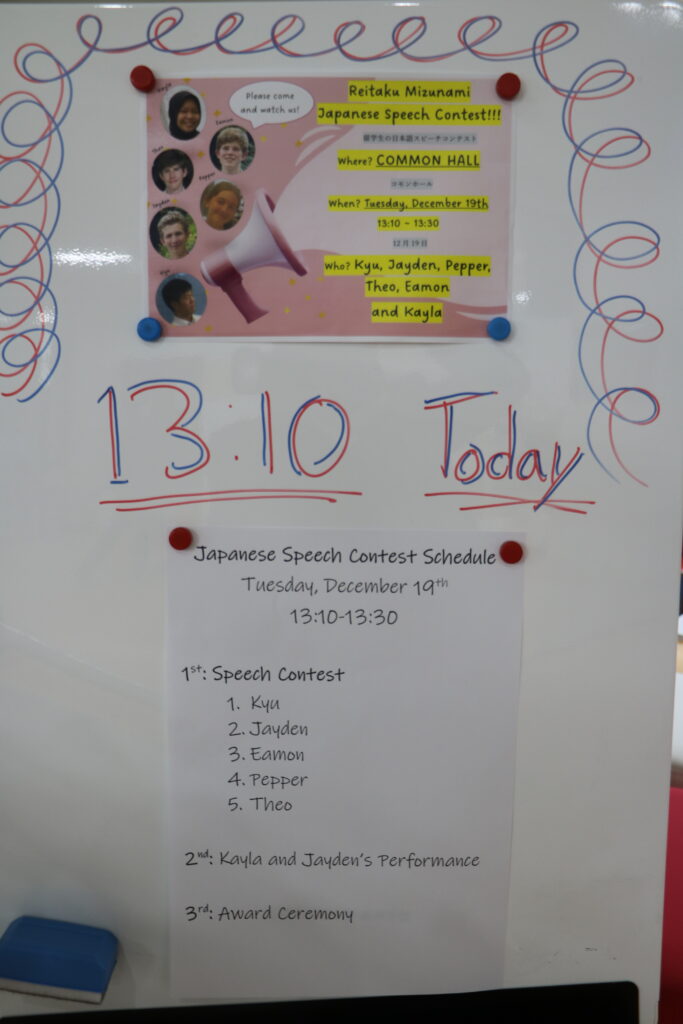 Please come
and watch us!
Reitaku Mizunami
Japanese Speech Contest!!!
留学生の日本語スピーチコンテスト
Where? COMMON HALL
コモンホール
When? Tuesday, December 19th
13:10 ~ 13:30
12月19日
Who? Kyu, Jayden, Pepper,
Theo, Eamon
and Kayla
Kayla
Eamon
Theo
Pepper
Jayden
Kyu
13:10 Today
Japanese Speech Contest Schedule
Tuesday, December 19th
13:10-13:30
1st: Speech Contest
1. Kyu
2. Jayden
3. Eamon
4. Pepper
5. Theo
2nd: Kayla and Jayden's Performance
3rd: Award Ceremony